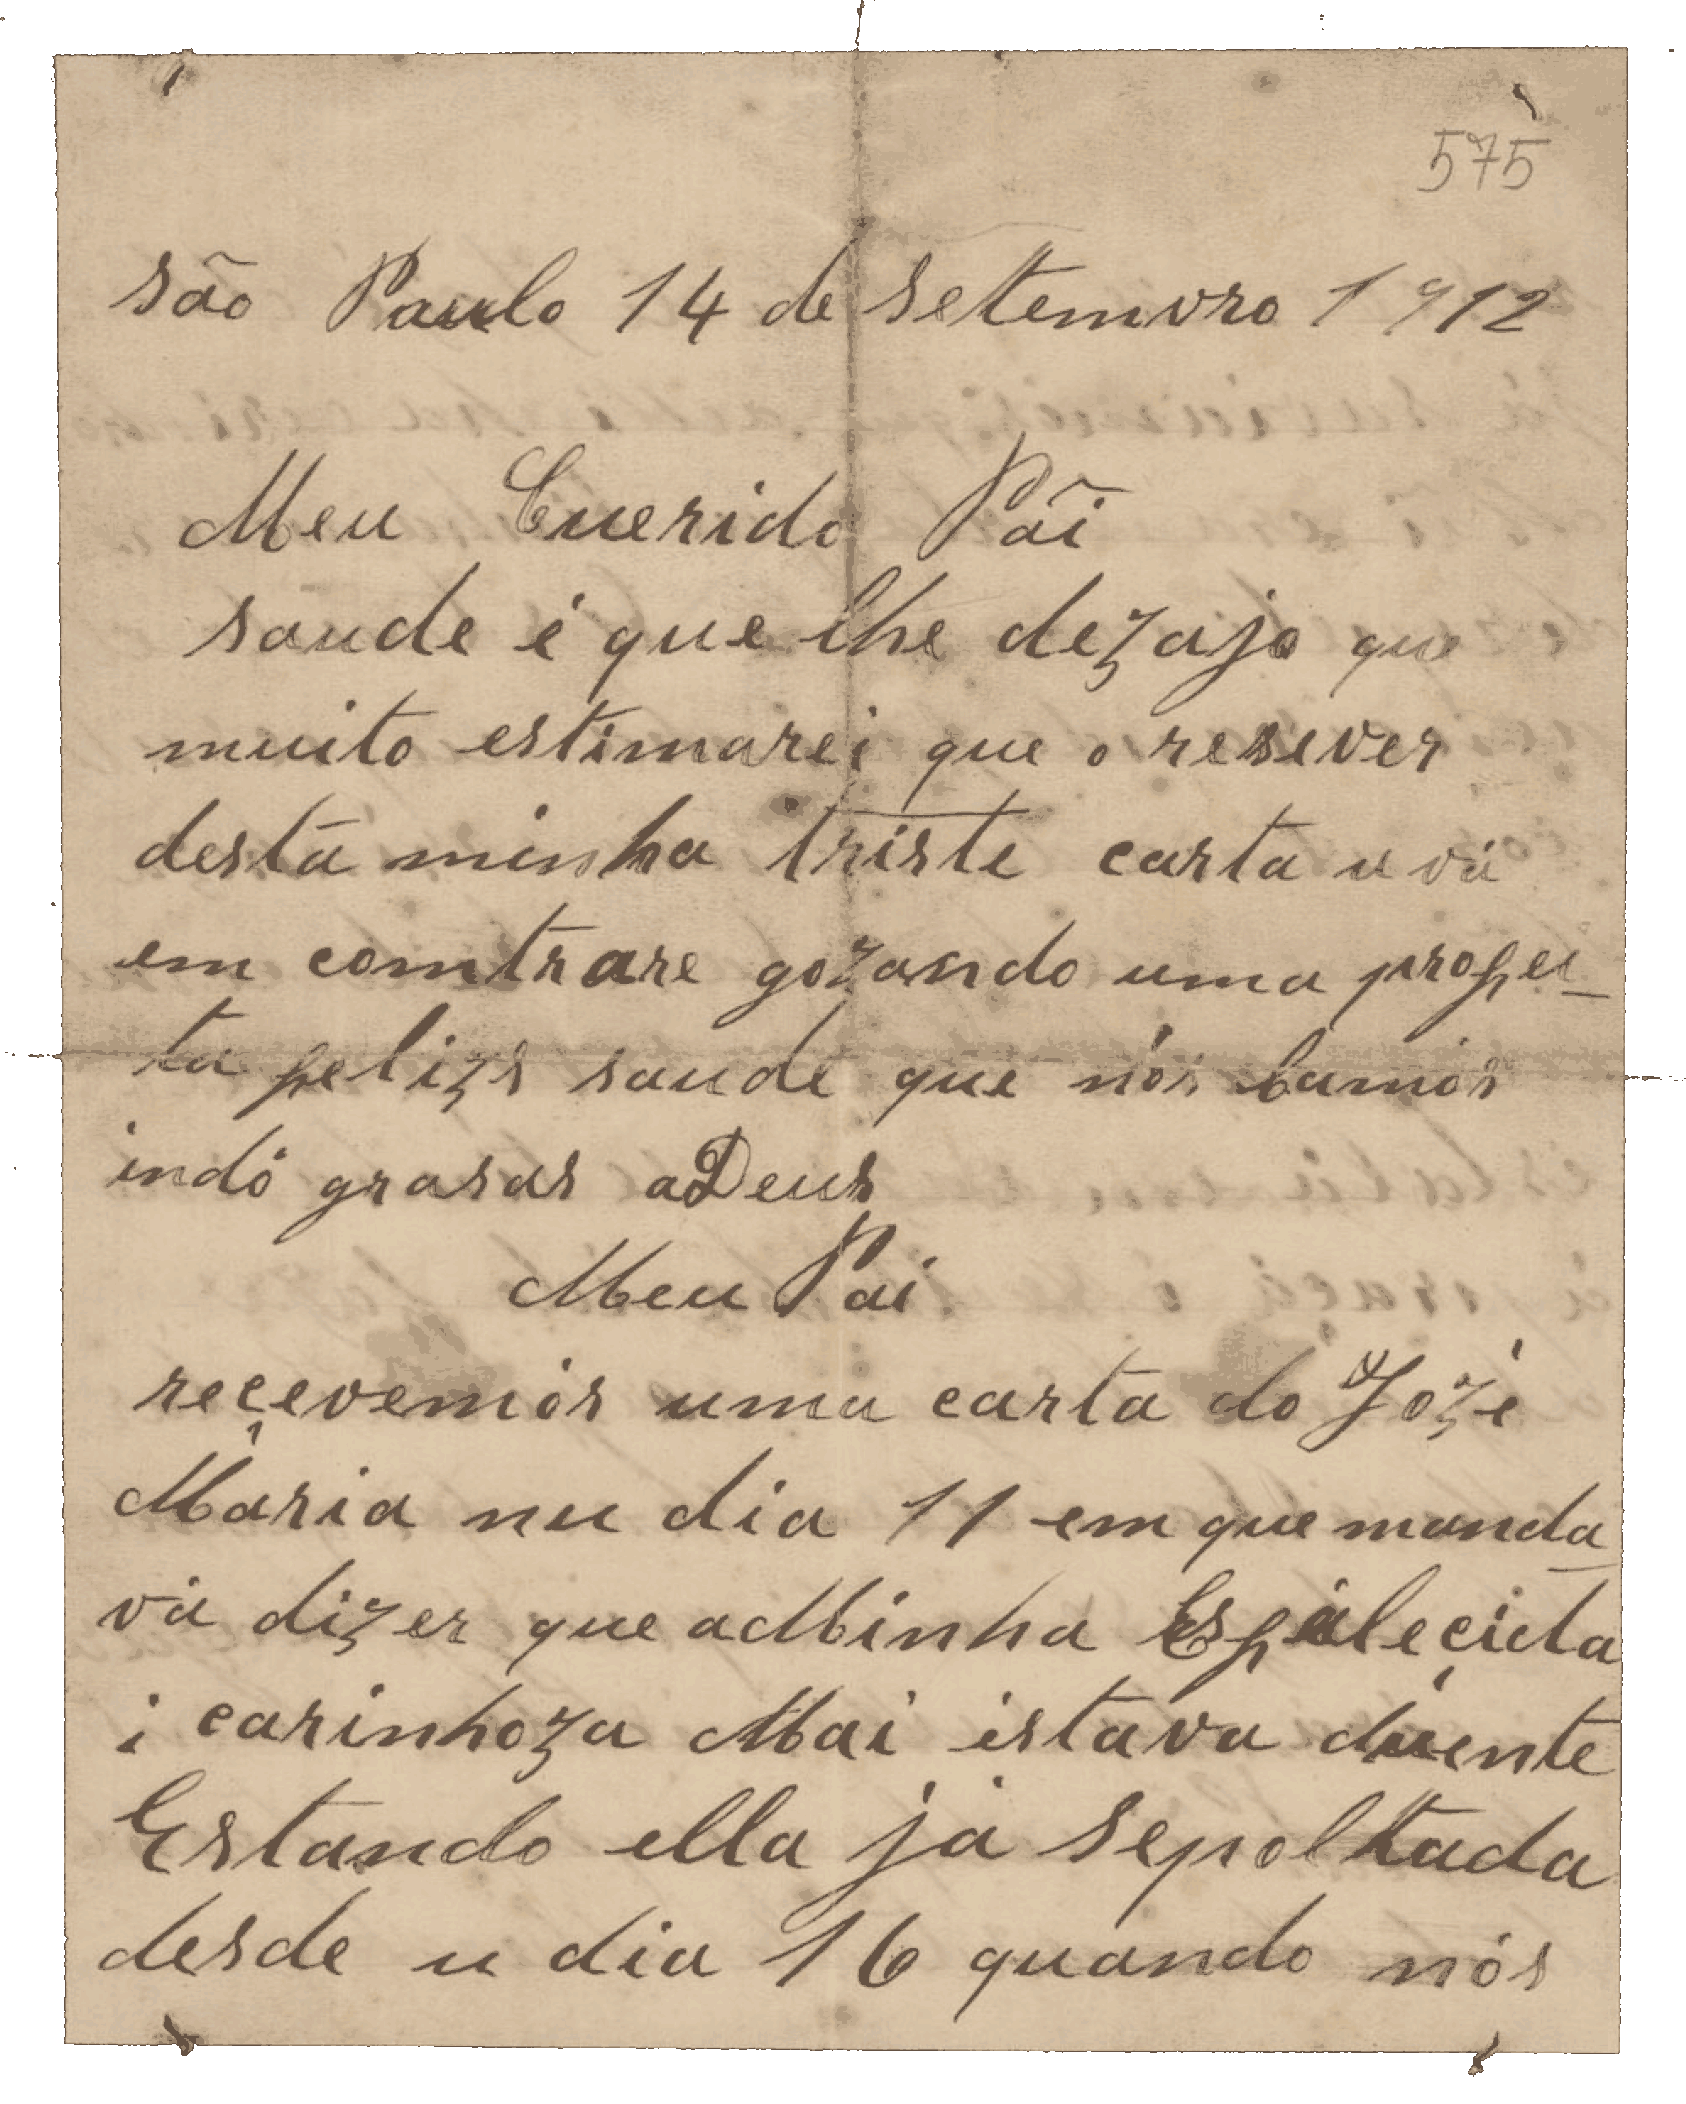 575
são Paulo 14 de setemvro 1912
Meu Cuerido Pãi
saude é que lhe dezajo que
muito estimarei que o resever
desta minha triste carta u vá
em comtrare gozando uma profei_
ta felizs saude que nós bamós
indó grasas a Deus
Meu Pai
reçevemós uma carta do Jozé
Maria nu dia 11 em que manda_
vá dizer que a Minha Esfaleçida
i carinhoza Mai istáva duente
Estando ella já sepoltada
desde u dia 16 quando nós